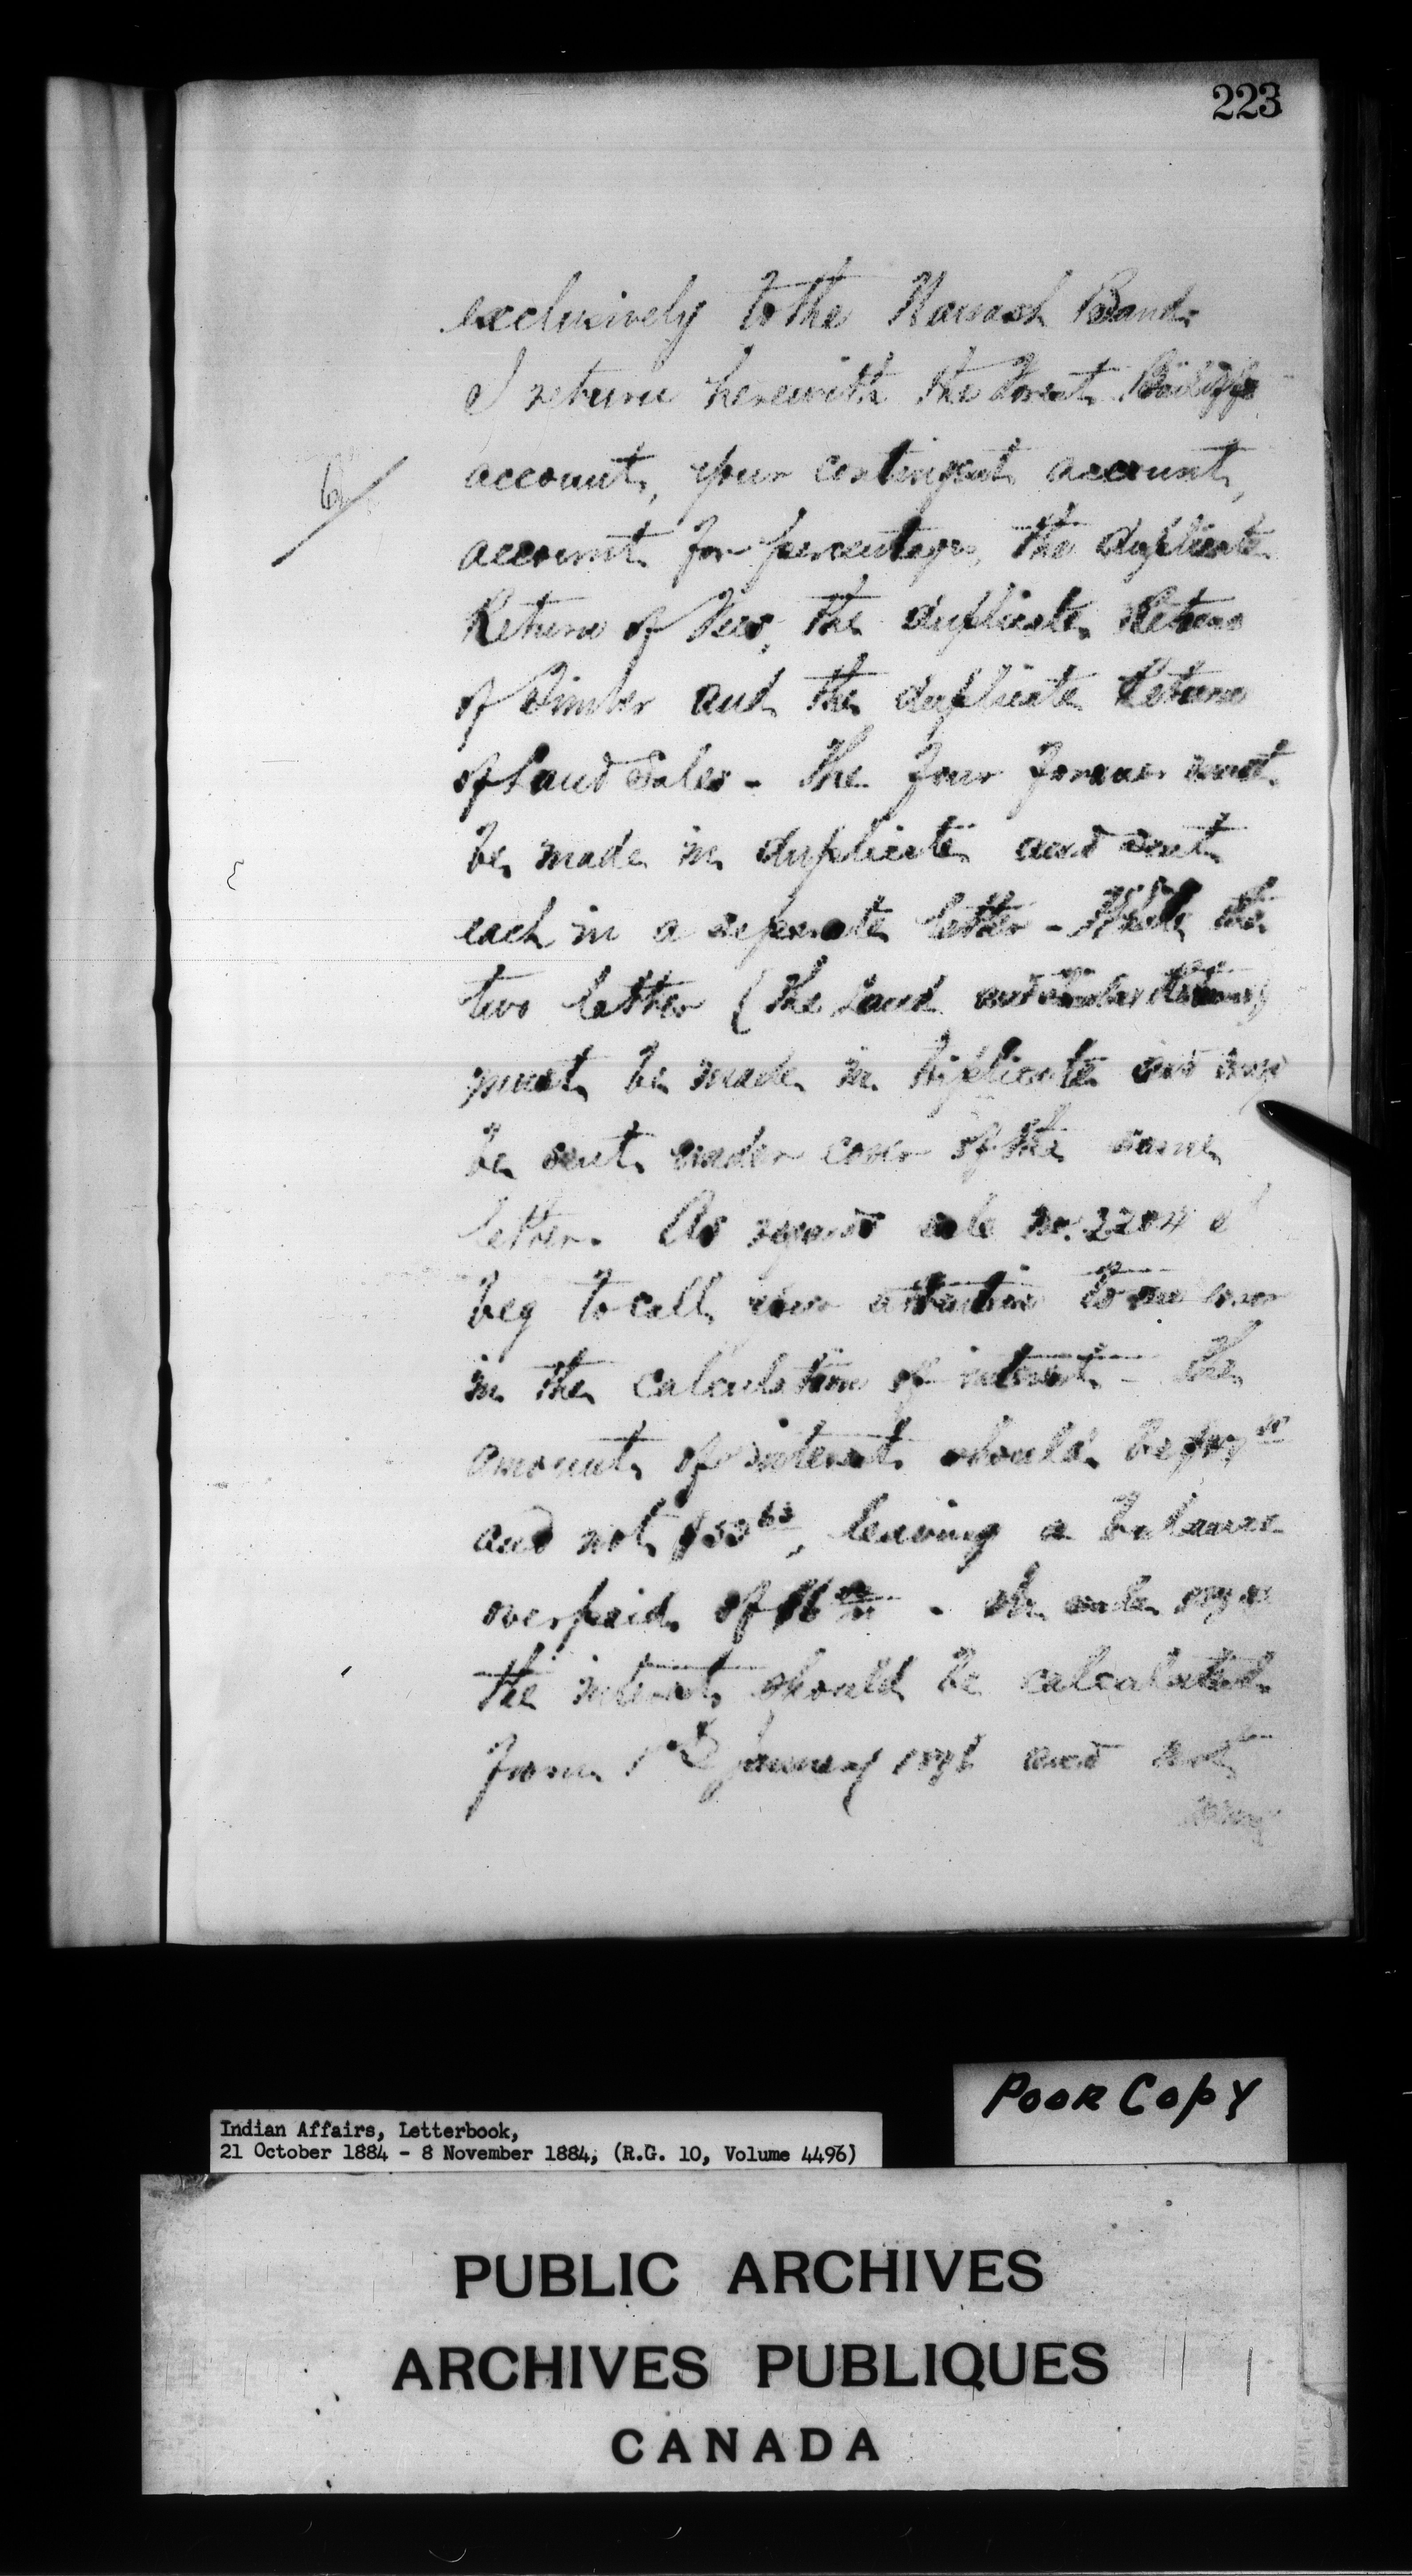 223
exclusively to the Nawash Band.
I return herewith the Forest Bailiff's
6/
account, your contingent account,
account for percentages, the duplicate
Return of Fees, the duplicate Return
of Timber and the duplicate Return
of Land Sales - The four former must
be made in duplicate and sent
each in a separate letter - While the
two latter (the Land and Timber Returns)
must be made in triplicate and may
be sent under cover of the same
letter. As regards sale No. 2204 I
beg to call your attention to an error
in the calculation of interest - The
amount of interest should be
and not $53.63, leaving a balance
overpaid of $6 . On sale
the interest should be calculated
from 1st January and not
Poor Copy
Indian Affairs, Letterbook,
21 October 1884 - 8 November 1884, (R.G. 10, Volume 4496)
PUBLIC ARCHIVES
ARCHIVES PUBLIQUES
CANADA